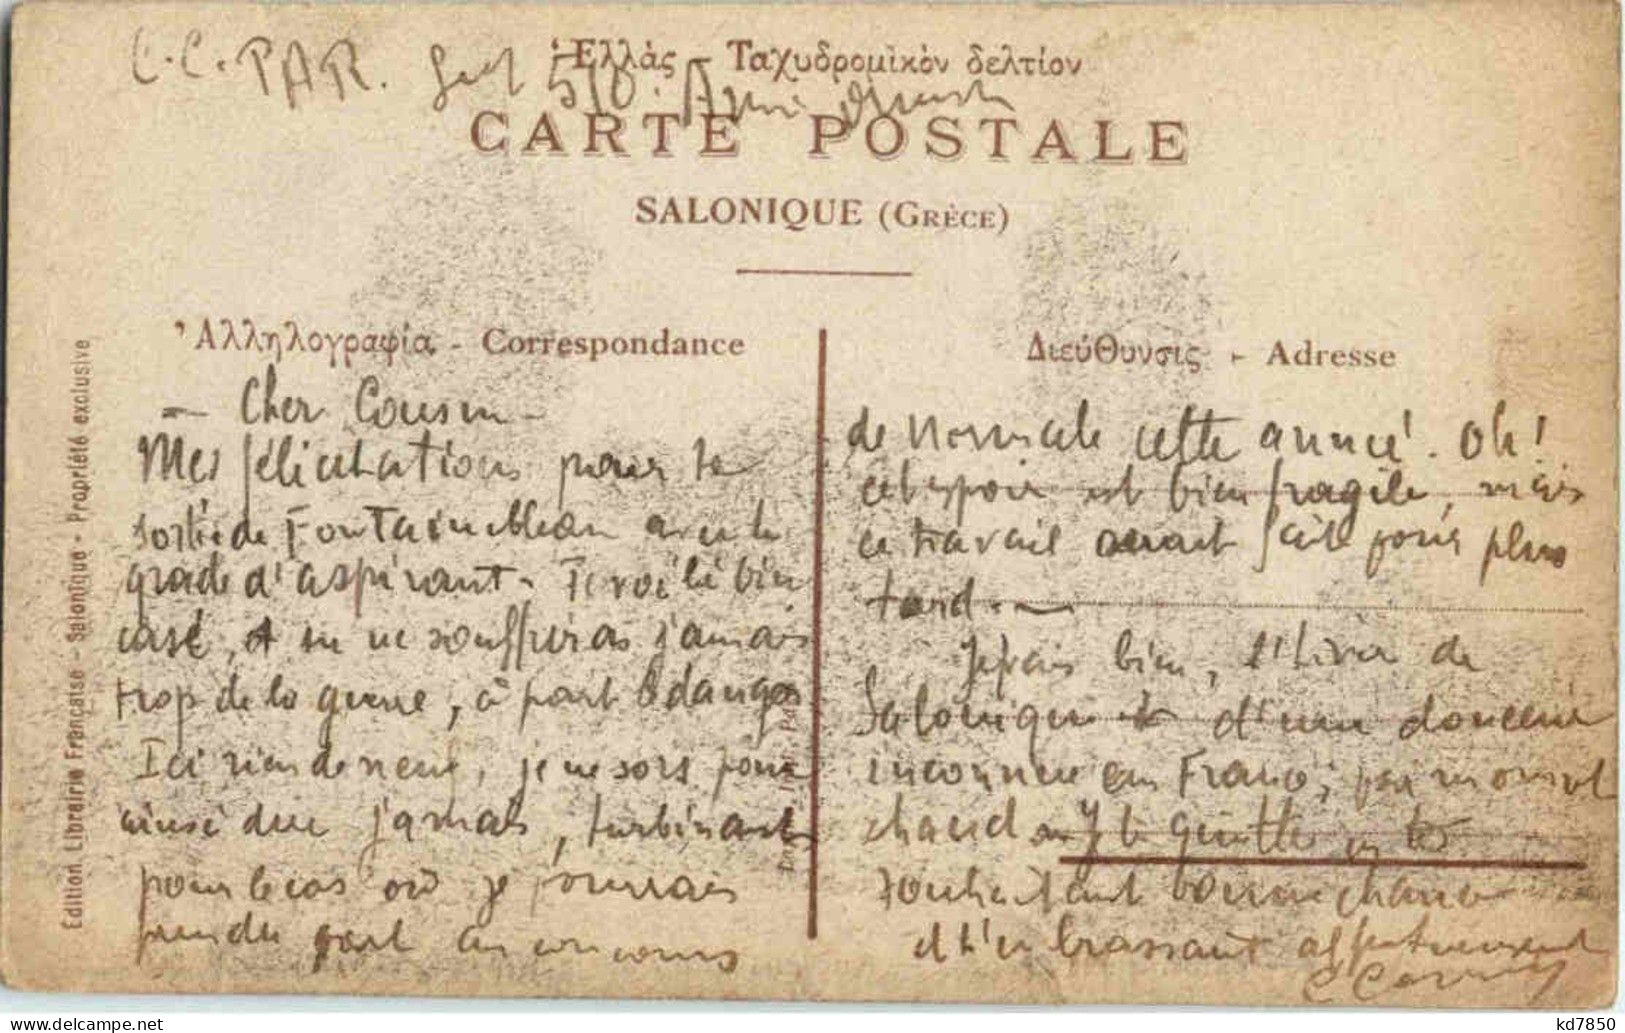 C.C. PAR. Sect 510. Armée d'Orient
Ἑλλάς - Ταχυδρομικόν δελτίον
CARTE POSTALE
SALONIQUE (GRÈCE)
Ἀλληλογραφία - Correspondance
- Cher Cousin -
Mes félicitations pour ta
sortie de Fontainebleau avec le
grade d'aspirant. Te voilà bien
casé, et tu ne souffriras jamais
trop de la guerre, à part le danger
Ici rien de neuf, je ne sors pour
ainsi dire jamais, turbinant
pour le cas où je pourrais
prendre part au concours
Διεύθυνσις - Adresse
de Normale cette année. Oh!
cet espoir est bien fragile, mais
ce travail serait fait pour plus
tard. -
Je fais bien, l'hiver de
Salonique est d'une douceur
inconnue en France,
chaud. Je te quitte en te
souhaitant bonne chance
et t'embrassant affectueusement
Edition Librairie Française - Salonique - Propriété exclusive
kd7850